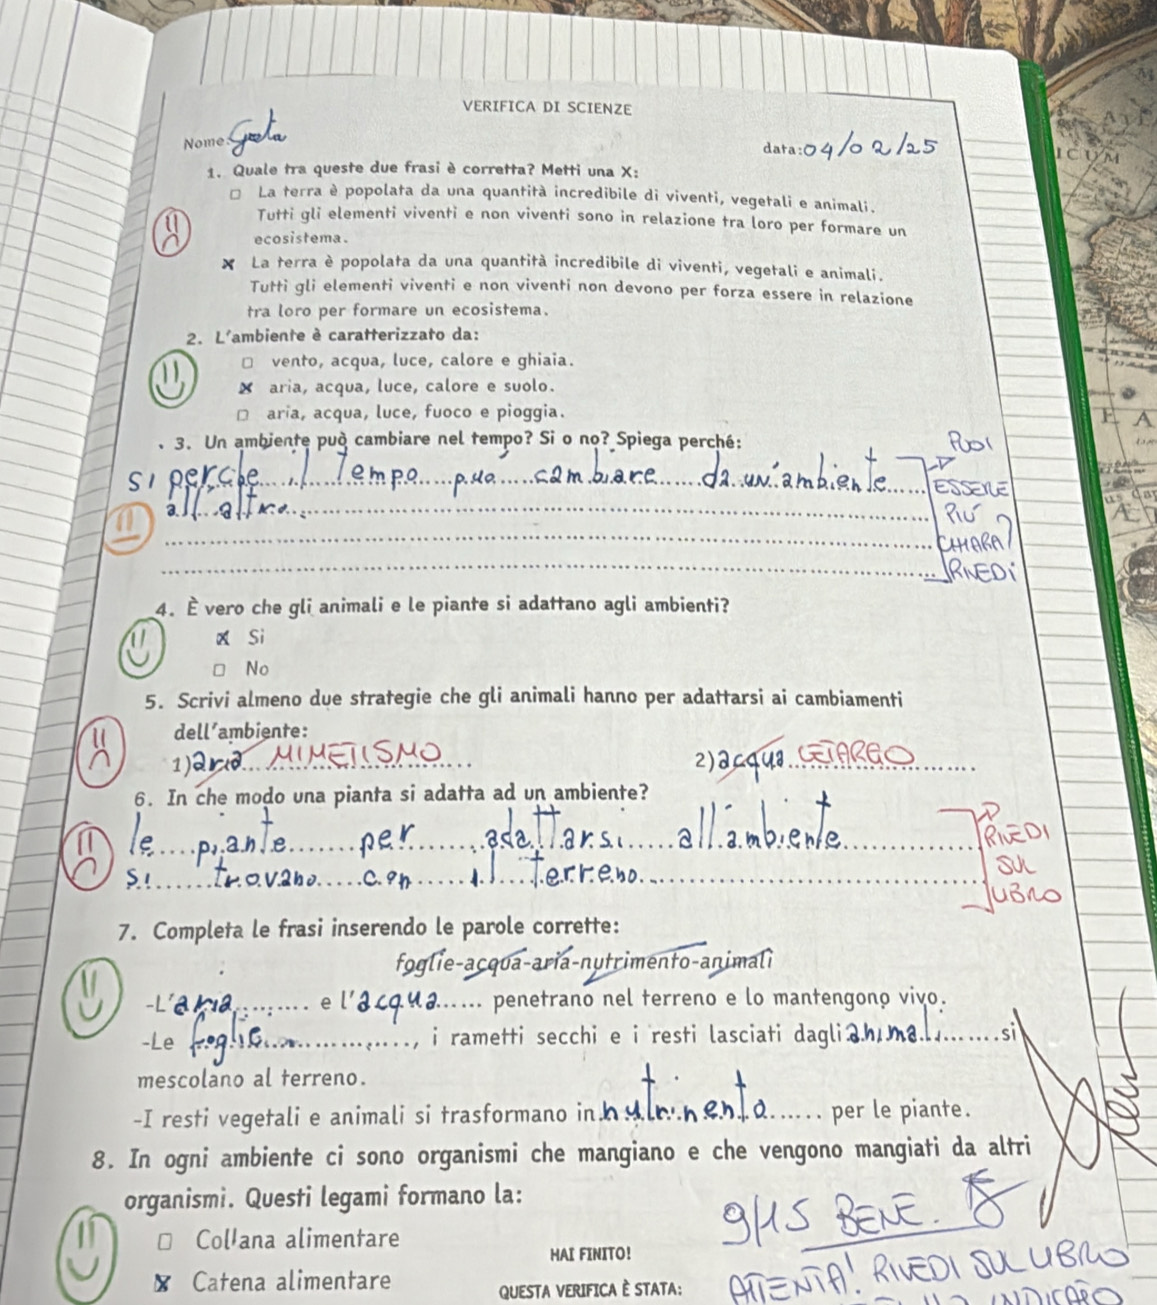 VERIFICA DI SCIENZE
Nome Greta
data: 04/02/25
1. Quale tra queste due frasi è corretta? Metti una X:
□ La terra è popolata da una quantità incredibile di viventi, vegetali e animali.
Tutti gli elementi viventi e non viventi sono in relazione tra loro per formare un
ecosistema.
X La terra è popolata da una quantità incredibile di viventi, vegetali e animali.
Tutti gli elementi viventi e non viventi non devono per forza essere in relazione
tra loro per formare un ecosistema.
2. L'ambiente è caratterizzato da:
□ vento, acqua, luce, calore e ghiaia.
X aria, acqua, luce, calore e suolo.
□ aria, acqua, luce, fuoco e pioggia.
3. Un ambiente può cambiare nel tempo? Si o no? Spiega perché:
si perche il tempo puo cambiare da un'ambiente
all altro.
PUOI
ESSERE
PIÚ
CHIARA
RIVEDI
4. È vero che gli animali e le piante si adattano agli ambienti?
X Si
□ No
5. Scrivi almeno due strategie che gli animali hanno per adattarsi ai cambiamenti
dell'ambiente:
1) aria MIMETISMO 2) acqua LETARGO
6. In che modo una pianta si adatta ad un ambiente?
le piante per adattarsi all'ambiente
si trovano con il terreno.
RIVEDI
SUL
LIBRO
7. Completa le frasi inserendo le parole corrette:
foglie-acqua-aria-nutrimento-animali
-L'aria e l'acqua penetrano nel terreno e lo mantengono vivo.
-Le foglie, i rametti secchi e i resti lasciati dagli animali si
mescolano al terreno.
-I resti vegetali e animali si trasformano in nutrimento per le piante.
8. In ogni ambiente ci sono organismi che mangiano e che vengono mangiati da altri
organismi. Questi legami formano la:
□ Collana alimentare
X Catena alimentare
9/15 BENE.
HAI FINITO!
QUESTA VERIFICA È STATA:
ATTENTA! RIVEDI SUL LIBRO
ICUM